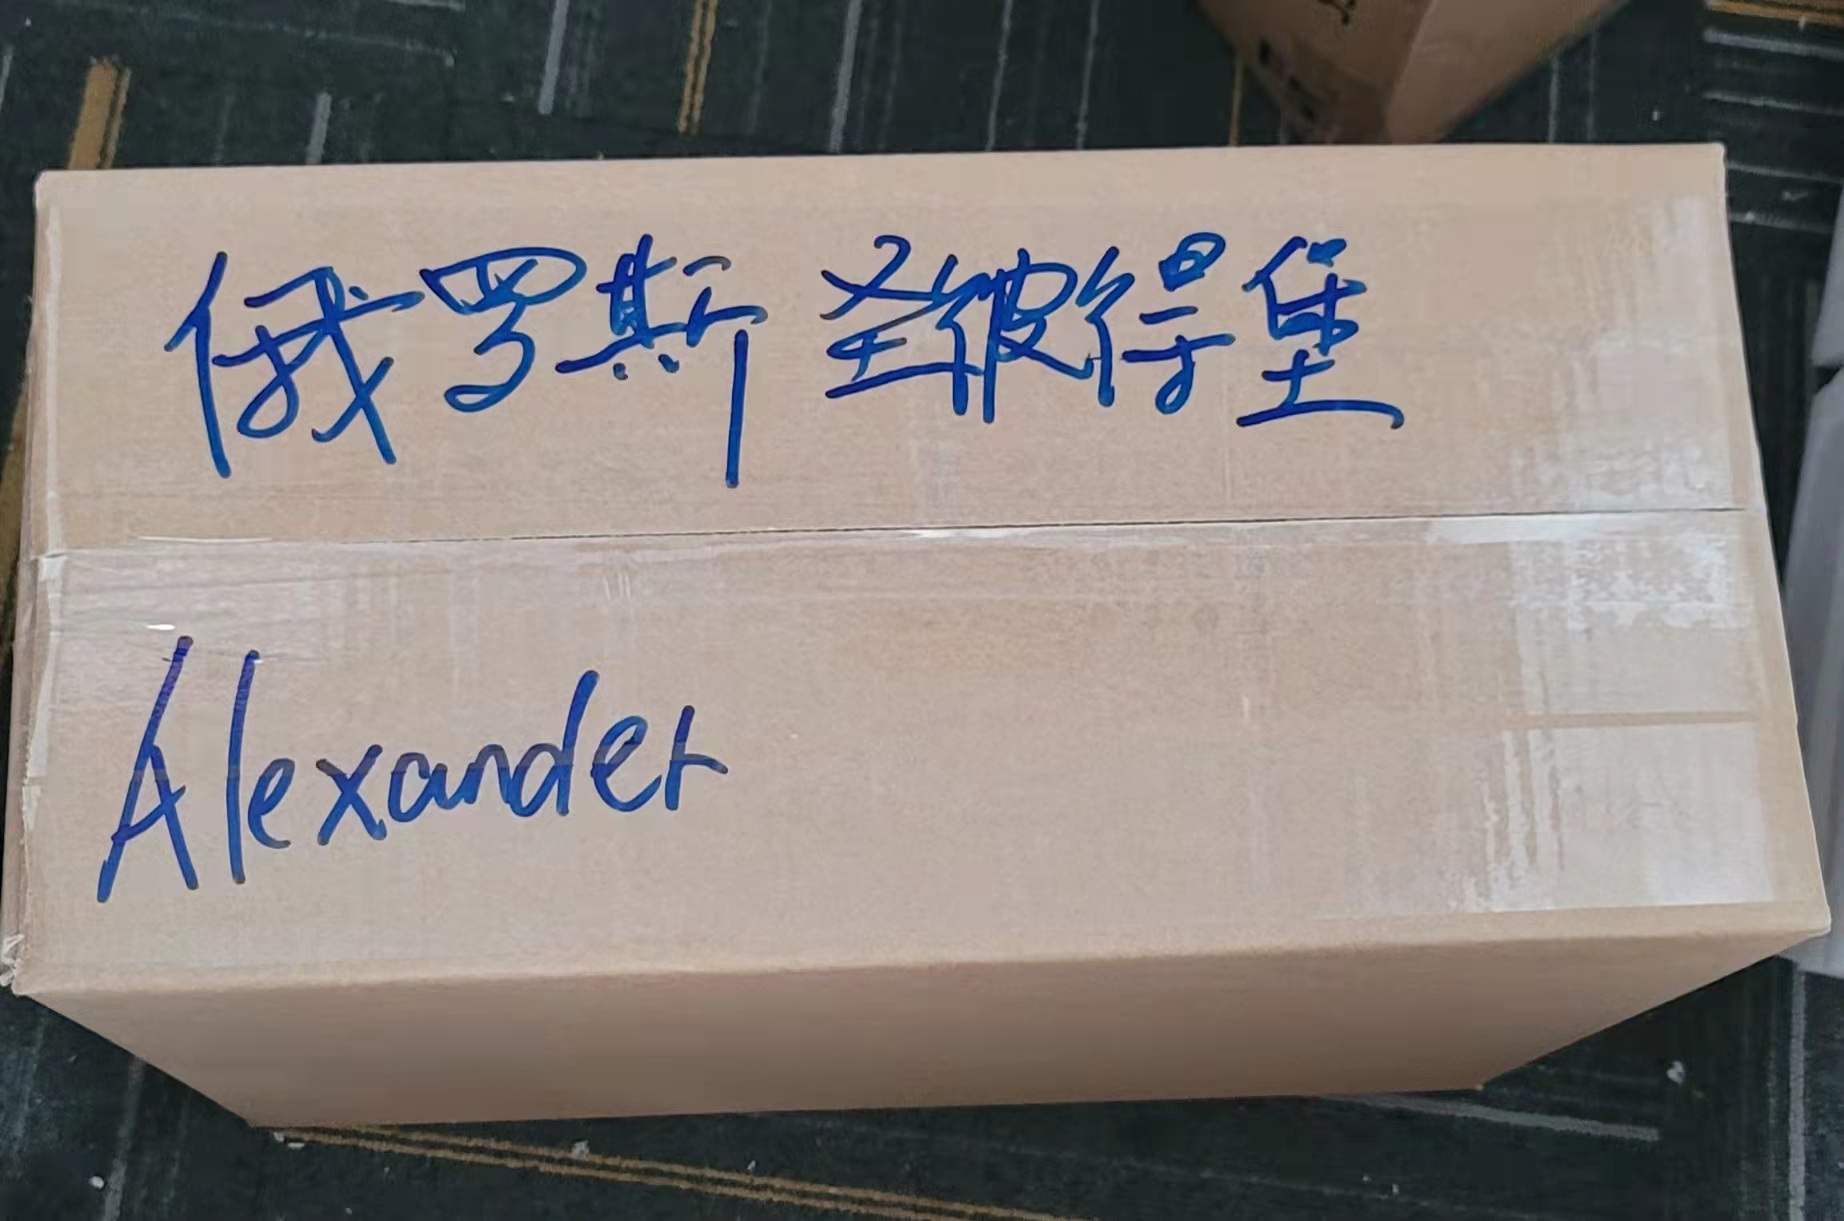 俄罗斯 圣彼得堡
Alexander